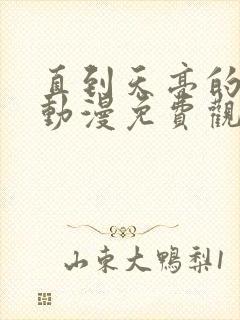 直到天亮的
動漫免費觀
山東大鴨梨1